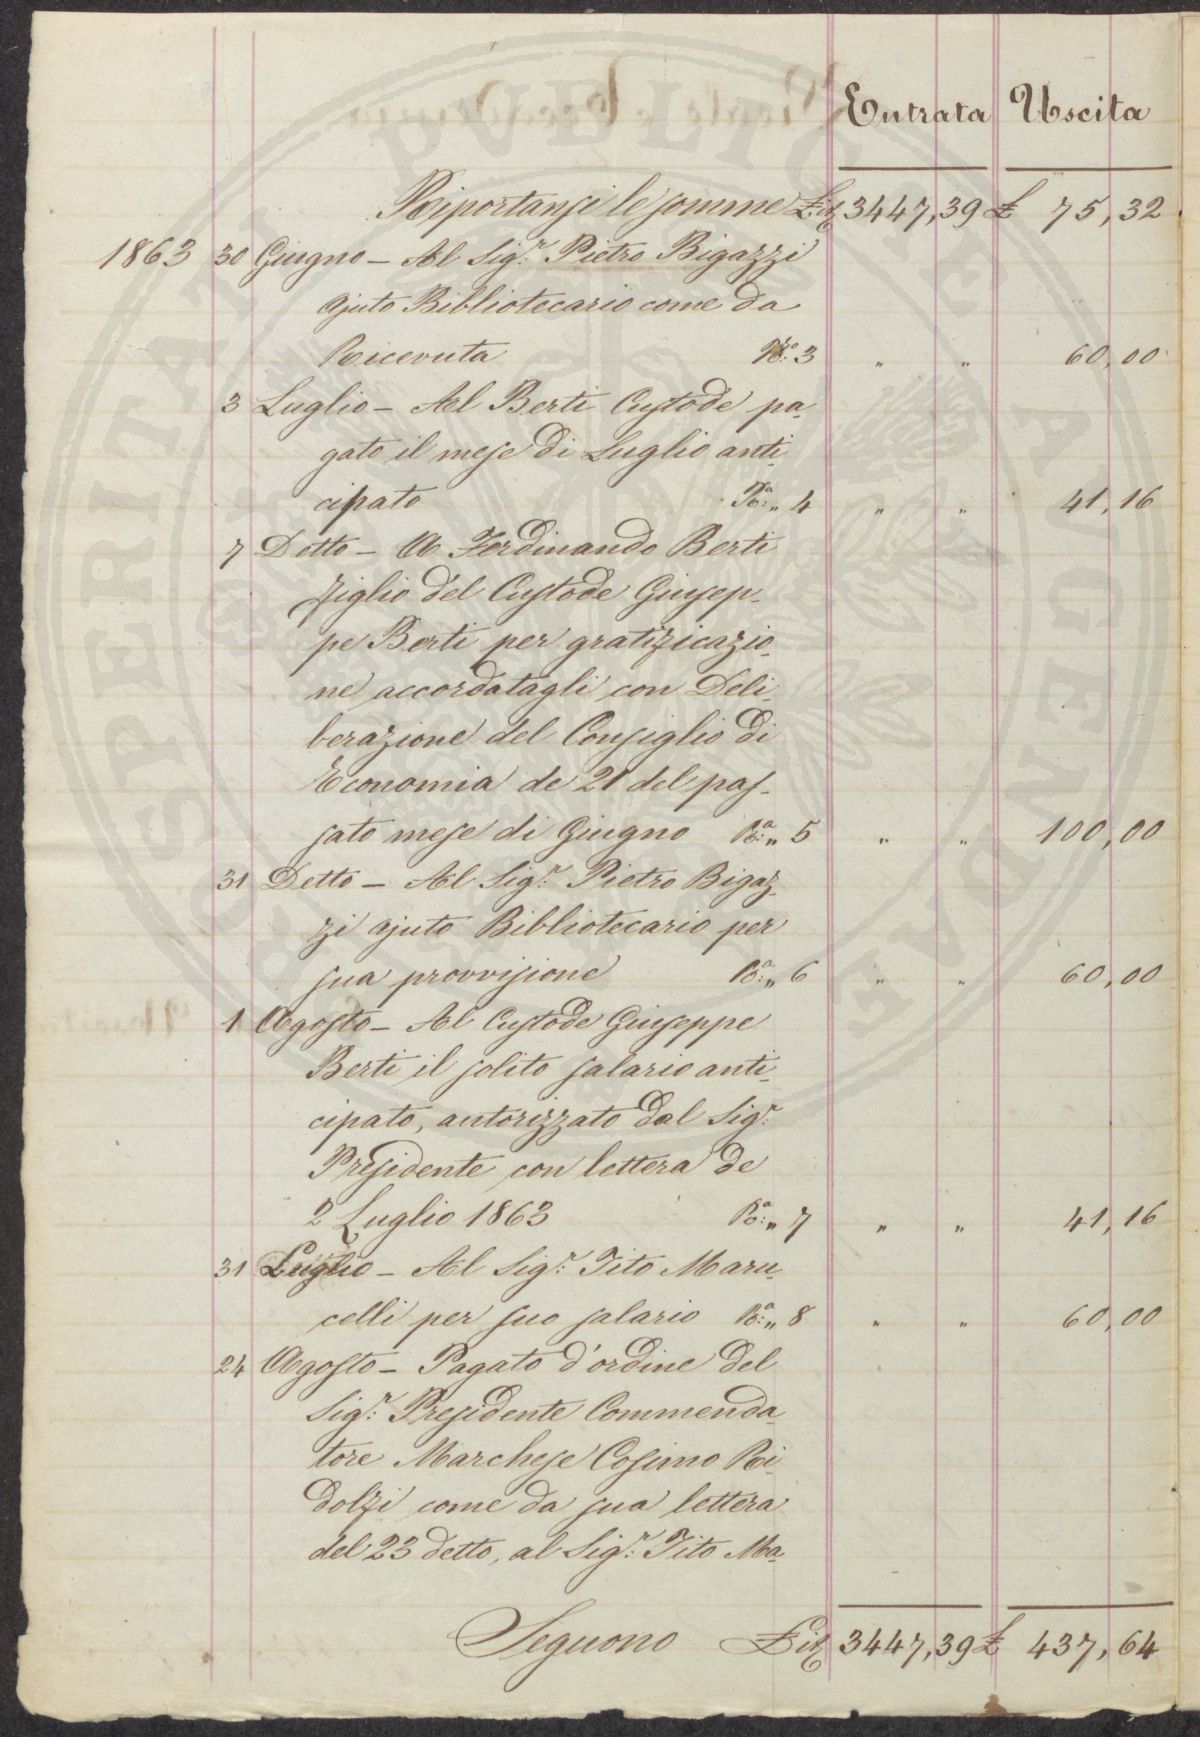 Entrata Uscita
Riportansi le somme Lit 3447,39 £ 75,32
1863 30 Giugno – Al Sig.r Pietro Bigazzi
Ajuto Bibliotecario come da
Ricevuta N.o 3 " " 60,00
3 Luglio – Al Berti Custode pa-
gato il mese di Luglio anti-
cipato R.a „ 4 " " 41,16
7 Detto – A Ferdinando Berti
figlio del Custode Giusep-
pe Berti per gratificazio-
ne accordatagli con Deli-
berazione del Consiglio di
Economia de 21 del pas-
sato mese di Giugno R.a „ 5 " " 100,00
31 Detto – Al Sig.r Pietro Bigaz-
zi Ajuto Bibliotecario per
sua provvisione R.a „ 6 " " 60,00
1 Agosto – Al Custode Giuseppe
Berti il solito salario anti-
cipato, autorizzato dal Sig.r
Presidente con lettera de
2 Luglio 1863 R.a „ 7 " " 41,16
31 Luglio – Al Sig.r Tito Maru-
celli per suo salario R.a „ 8 " " 60,00
24 Agosto – Pagato d'ordine del
Sig.r Presidente Commenda-
tore Marchese Cosimo Ri-
dolfi come da sua lettera
del 23 detto, al Sig.r Tito Ma-
Seguono Lit 3447,39 £ 437,64